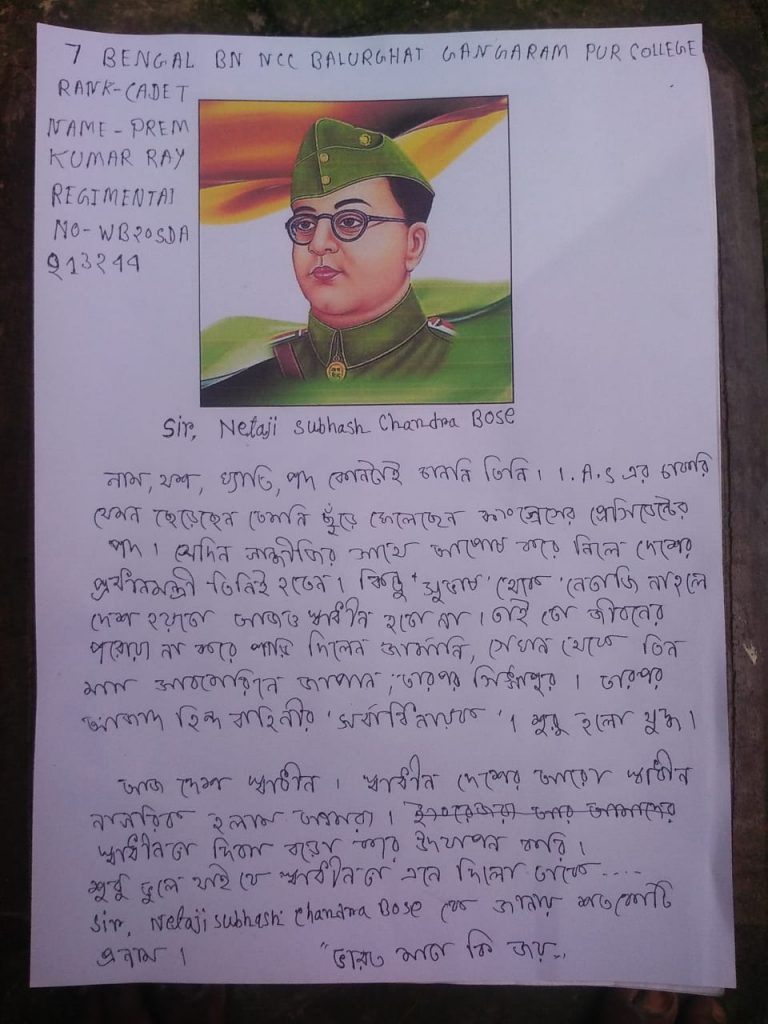 7 BENGAL BN NCC BALURGHAT GANGARAM PUR COLLEGE
RANK-CADET
NAME - PREM
KUMAR RAY
REGIMENTAl
NO-WB20SDA
913244
Sir, Netaji Subhash Chandra BOSE
নাম, যশ, খ্যাতি, পদ কোনটাই চাননি তিনি। I.A.S এর চাকরি
যেমন ছেড়েছেন তেমনি ছুঁড়ে ফেলেছেন কংগ্রেসের প্রেসিডেন্টের
পদ। সেদিন গান্ধীজির সাথে আপোষ করে নিলে দেশের
প্রধানমন্ত্রী তিনিই হতেন। কিন্তু 'সুভাষ' থেকে 'নেতাজি' না হলে
দেশ হয়তো আজও স্বাধীন হতো না। তাই তো জীবনের
পরোয়া না করে পাড়ি দিলেন জার্মানি, সেখান থেকে তিন
মাস সাবমেরিনে জাপান, তারপর সিঙ্গাপুর। তারপর
আজাদ হিন্দ বাহিনীর 'সর্বাধিনায়ক'। শুরু হলো যুদ্ধ।
আজ দেশ স্বাধীন। স্বাধীন দেশের আরো স্বাধীন
নাগরিক হলাম আমরা। ইংরেজরা আর আমাদের
স্বাধীনতা দিবস বড়ো করে উদযাপন করি।
শুধু ভুলে যাই যে স্বাধীনতা এনে দিলো তাকে....
Sir, Netaji Subhash Chandra BOSE কে জানায় শতকোটি
প্রনাম। "ভারত মাতা কি জয়..